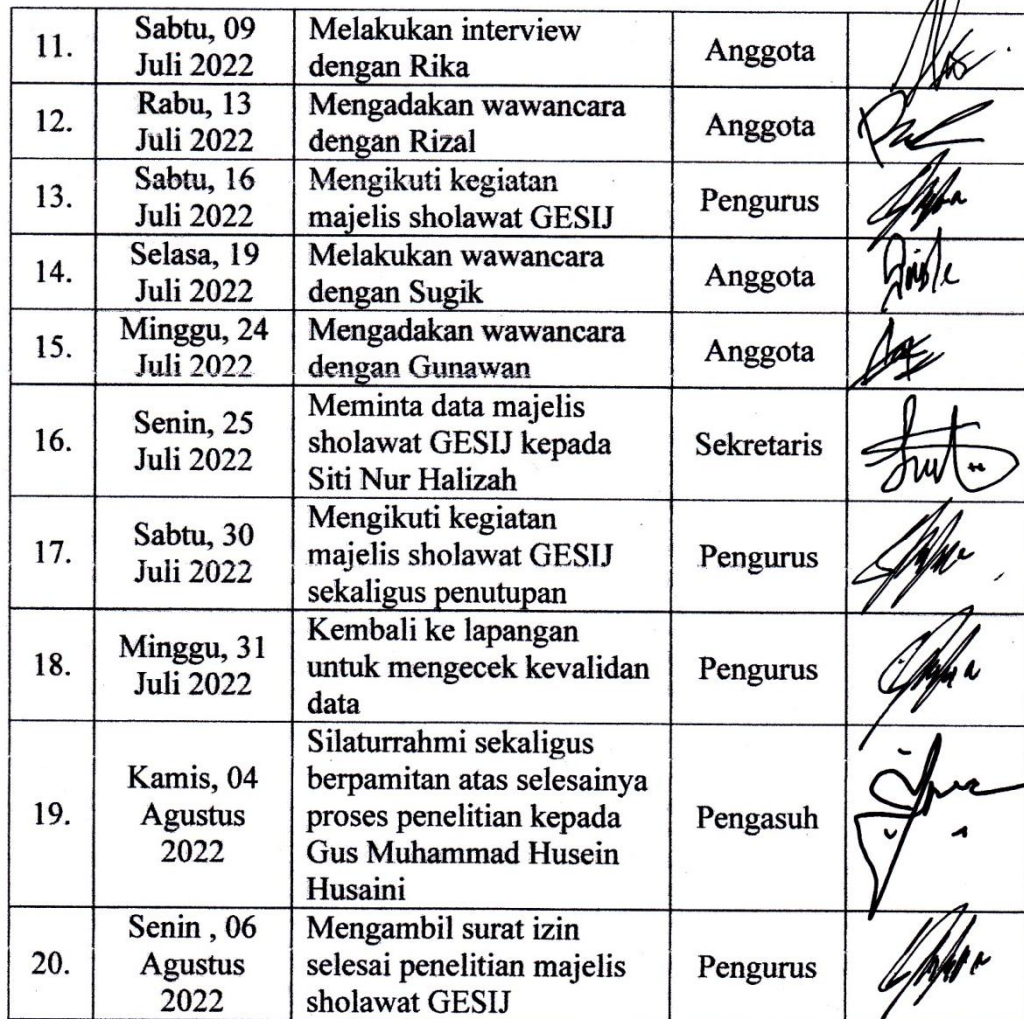 11.
Sabtu, 09
Juli 2022
Melakukan interview
dengan Rika
Anggota
12.
Rabu, 13
Juli 2022
Mengadakan wawancara
dengan Rizal
Anggota
13.
Sabtu, 16
Juli 2022
Mengikuti kegiatan
majelis sholawat GESIJ
Pengurus
14.
Selasa, 19
Juli 2022
Melakukan wawancara
dengan Sugik
Anggota
15.
Minggu, 24
Juli 2022
Mengadakan wawancara
dengan Gunawan
Anggota
16.
Senin, 25
Juli 2022
Meminta data majelis
sholawat GESIJ kepada
Siti Nur Halizah
Sekretaris
17.
Sabtu, 30
Juli 2022
Mengikuti kegiatan
majelis sholawat GESIJ
sekaligus penutupan
Pengurus
18.
Minggu, 31
Juli 2022
Kembali ke lapangan
untuk mengecek kevalidan
data
Pengurus
19.
Kamis, 04
Agustus
2022
Silaturrahmi sekaligus
berpamitan atas selesainya
proses penelitian kepada
Gus Muhammad Husein
Husaini
Pengasuh
20.
Senin , 06
Agustus
2022
Mengambil surat izin
selesai penelitian majelis
sholawat GESIJ
Pengurus